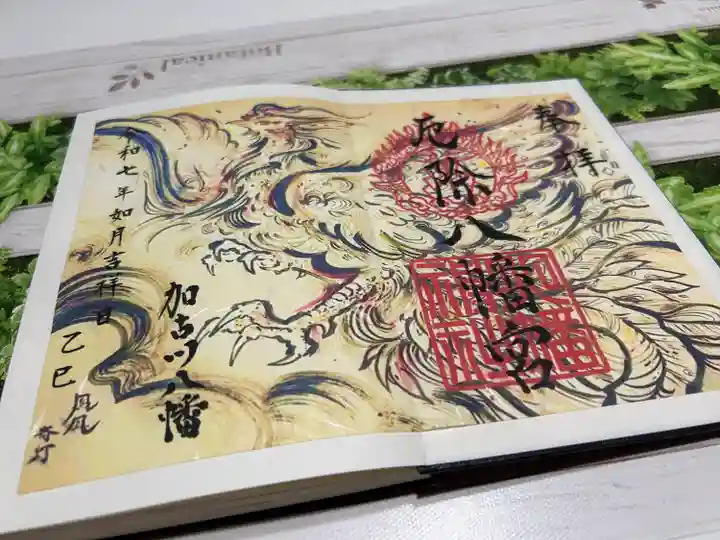 Botanical
奉拝
厄除八幡宮
加古川八幡
令和七年如月吉祥日
乙巳